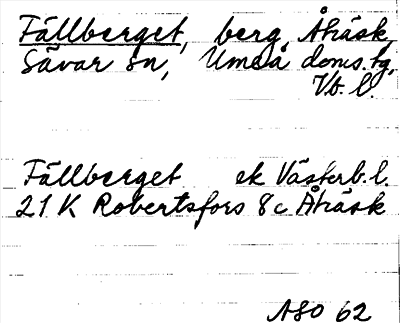 Fällberget, berg Åträsk,
Sävar sn, Umeå doms.tg,
Vb. l.
Fällberget ek Västerb. l.
21 K Robertsfors 8c Åträsk
ASO 62